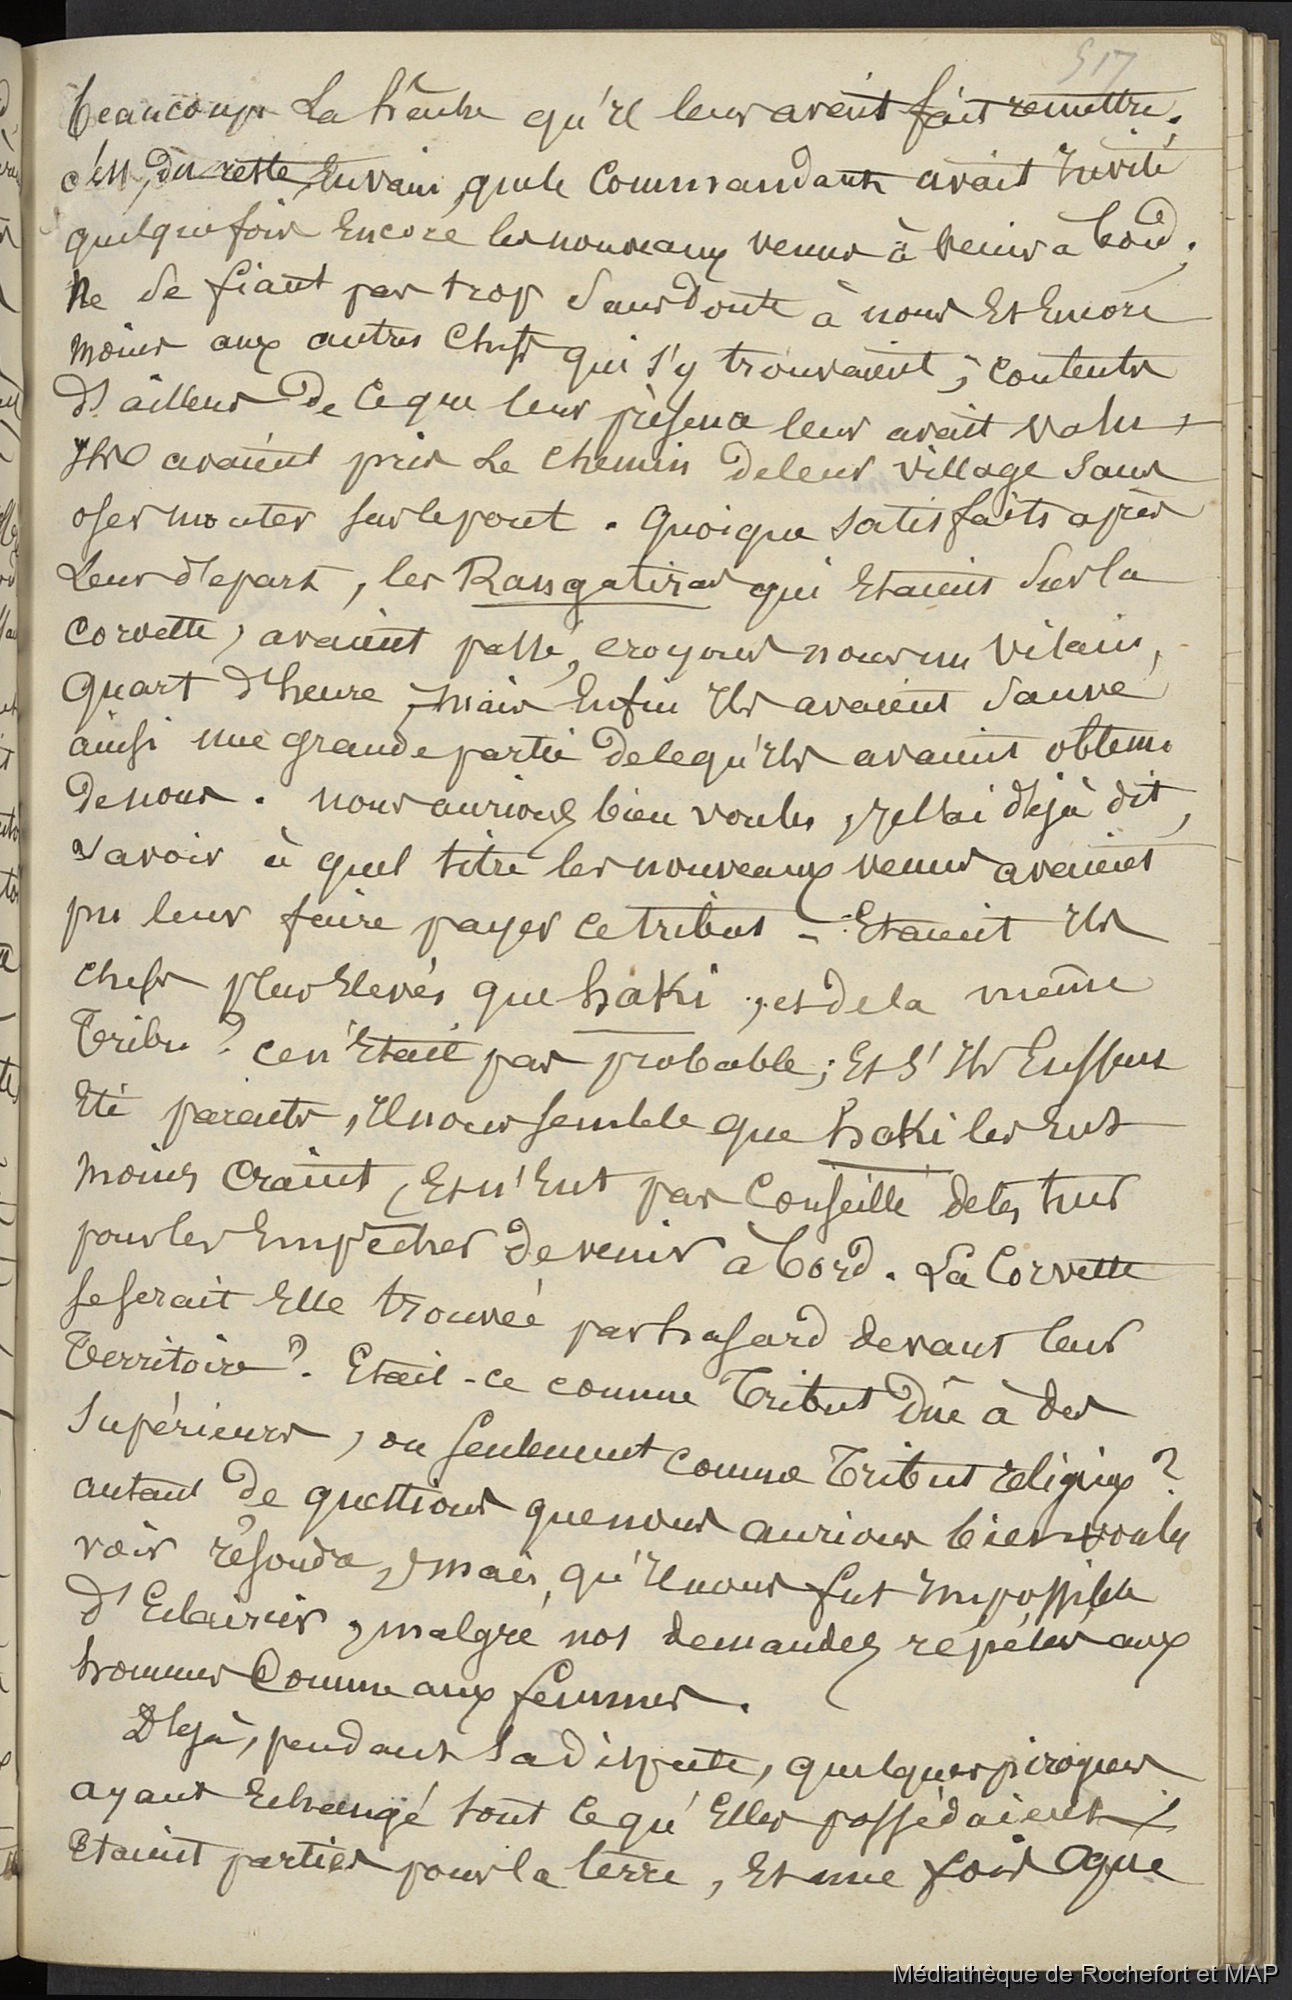 517
beaucoup la hâche qu'il leur avait fait remettre.
c'est, du reste, Envain, que le Commandant avait Invité
quelquefois Encore les nouveaux venus à venir à bord;
Ne se fiant pas trop sans Doute à nous Et Encore
moins aux autres Chefs qui s'y trouvaient; contents
D'ailleurs De ce que leur présence leur avait valu,
Ils avaient pris le chemin de leur village sans
oser monter sur le pont. Quoique satisfaits après
leur départ, les Rangatiras qui Etaient sur la
corvette, avaient passé, croyons nous un vilain,
quart d'heure, mais Enfin Ils avaient sauvé
ainsi une grande partie de ce qu'Ils avaient obtenu
de nous. nous aurions bien voulu, je l'ai déjà dit,
savoir à quel titre les nouveaux venus avaient
pu leur faire payer ce tribut - Etaient Ils
chefs plus Elevés que haki, et de la même
Tribu? ce n'Etait pas probable; Et s'Ils Eussent
Eté parents, Il nous semble que haki les Eut
moins craint, Et n'Eut pas Conseillé de les tuer
pour les Empêcher de venir à bord. La Corvette
se serait Elle trouvée par hasard devant leur
Territoire? Etait-ce comme Tribut Dû à des
supérieurs, ou seulement comme Tribut religieux?
autant De questions que nous aurions bien voulu
voir résoudre, mais, qu'Il nous fut Impossible
D'Eclaircir, malgré nos demandes répétées aux
hommes Comme aux femmes.
Déjà, pendant la dispute, quelques pirogues
ayant Echangé tout ce qu'Elles possédaient
Etaient parties pour la terre, Et une fois que
Médiathèque de Rochefort et MAP